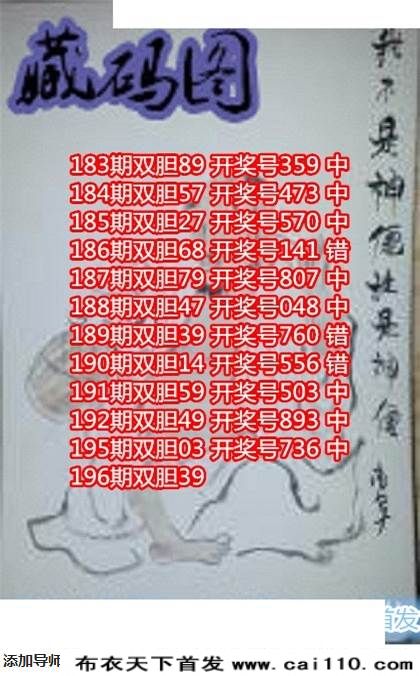 藏码图
我不是神但比是神值
183期双胆89 开奖号359 中
184期双胆57 开奖号473 中
185期双胆27 开奖号570 中
186期双胆68 开奖号141 错
187期双胆79 开奖号807 中
188期双胆47 开奖号048 中
189期双胆39 开奖号760 错
190期双胆14 开奖号556 错
191期双胆59 开奖号503 中
192期双胆49 开奖号893 中
195期双胆03 开奖号736 中
196期双胆39
首发
添加导师 布衣天下首发 www.cai110.com